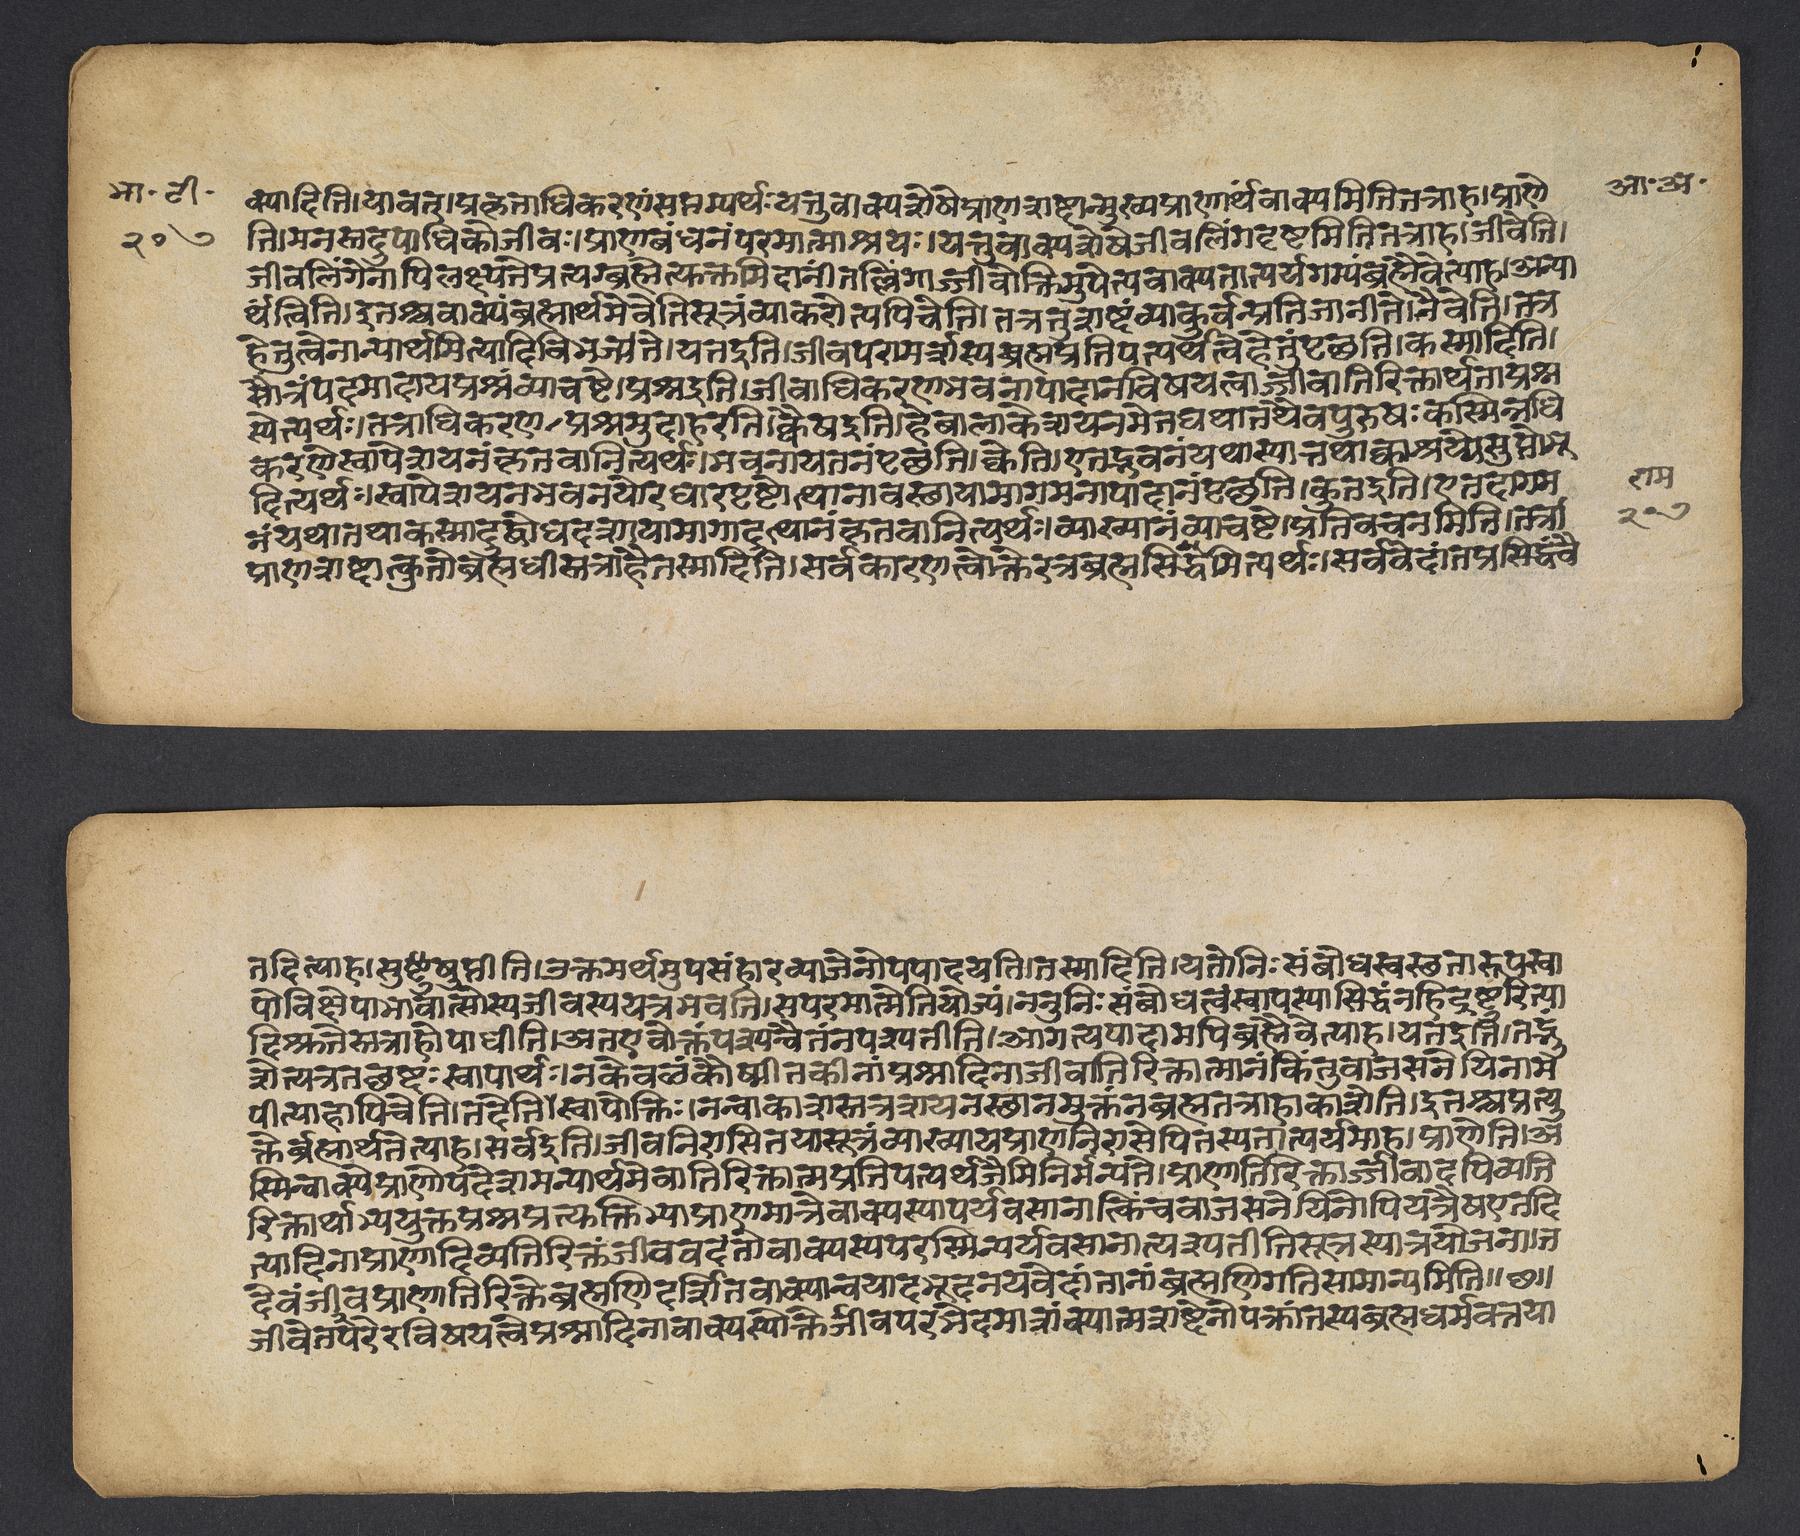 भा. टी.
२०७
आ. अ.
क्यादिति।यावत्।प्रकृताधिकरणंसप्तम्यर्थः यत्तुवाक्यशेषेप्राणशब्दान्मुख्यप्राणार्थंवाक्यमितितत्राह।प्राणे
ति।मनस्तदुपाधिकोजीवः।प्राणबंधनंपरमात्माश्रयः।यत्तुवाक्यशेषेजीवलिंगदृष्टमितितत्राह।जीवेति।
जीवलिंगेनापिलक्ष्यंतेप्रत्यग्ब्रह्मेत्युक्तमिदानींतल्लिंगाज्जीवोक्तिमुपेत्यवाक्यतात्पर्यगम्यंब्रह्मैवेत्याह।अन्या
र्थंत्विति।इतश्चवाक्यंब्रह्मार्थमेवेतिसूत्रंव्याकरोत्यपिचेति।तत्रतुशब्दंव्याकुर्वन्प्रतिजानीते।नैवेति।तत्र
हेतुत्वेनान्यार्थमित्यादिविभजते।यतइति।जीवपरामर्शस्यब्रह्मप्रतिपत्त्यर्थत्वेहेतुंपृच्छति।कस्मादिति।
सौत्रंपदमादायप्रश्नंव्याचष्टे।प्रश्नइति।जीवाधिकरणभवनापादानविषयत्वाज्जीवातिरिक्तार्थताप्रश्न
स्येत्यर्थः।तत्राधिकरण प्रश्नमुदाहरति।क्वैषइति।हेबालाकेशयनमेतद्यथातथैवपुरुषः कस्मिन्नधि
करणेस्वापेशयनंकृतवानित्यर्थः।भवनायतनंपृच्छति।क्वेति।एतद्भवनंयथास्यात्तथाक्वाश्रयेसुप्तोभू
दित्यर्थः।स्वापेशयनभवनयोरधारपृष्टोत्थानावस्छायामागमनापादानंपृच्छति।कुतइति।एतदागम
राम
नंयथातथाकस्मादुद्बोधदशायामागादुत्थानंकृतवानित्यर्थः।व्याख्यानंव्याचष्टे।प्रतिवचनमिति।तत्रा
२०७
प्राणशब्दात्कुतोब्रह्मधीस्तत्राहैतस्मादिति।सर्वकारणत्वोक्तेरत्रब्रह्मसिद्धमित्यर्थः।सर्ववेदांतप्रसिद्धंचै
तदित्याह।सुष्टुषुप्तीति।उक्तमर्थमुपसंहारव्याजेनोपपादयति।तस्मादिति।यतोनिःसंबोधस्वस्छतारूपस्वा
पोविक्षेपाभावात्सोस्यजीवस्ययत्रभवति।सपरमात्मेतियोज्यं।ननुनिःसंबोधत्वंस्वापस्यासिद्धंनहिद्रष्टुरित्या
दिश्रुतेस्तत्राहोपाधीति।अतएवोक्तंपश्यन्वैतंनपश्यतीति।आगत्यपादामपिब्रह्मैवेत्याह।यतइति।तद्भ्रं
शेत्यत्रतच्छब्दः स्वापार्थः।नकेवळंकौषीतकीनांप्रश्नादिनाजीवातिरिक्तात्मानंकिंतुवाजसनेयिनाम
पीत्याहापिचेति।तदेति।स्वापोक्तिः।नन्वाकाशस्तत्रशयनस्छानमुक्तंनब्रह्मतत्राहाकाशेति।इतश्चप्रत्यु
क्तेर्ब्रह्मार्थतेत्याह।सर्वइति।जीवनिरासितयासूत्रंव्याख्यायप्राणनिरासेपितस्यतात्पर्यमाह।प्राणेति।अ
स्मिन्वाक्येप्राणोपदेशमन्यार्थमेवातिरिक्तात्मप्रतिपत्त्यर्थंजैमिनिर्मन्यते।प्राणातिरिक्ताज्जीवादपिव्यति
रिक्तार्थाभ्यपुक्तप्रश्नप्रत्युक्तिभ्यांप्राणमात्रेवाक्यस्यापर्यवसानात्किंचवाजसनेयिनोपियत्रैषएतदि
त्यादिनाप्राणादिव्यतिरिक्तंजीववदंतोवाक्यस्यपरस्मिन्पर्यवसानात्पश्यतीतिसूत्रस्यात्रयोजना।त
देवंजीवप्राणातिरिक्तेब्रह्मणिदर्शितवाक्यान्वयादभूदनयवेदांतानांब्रह्मणिगतिसामान्यमिति॥छ॥
जीवेतपरेरविषयत्वेप्रश्नादिनावाक्यस्योक्तेर्जीवपरभेदमाशंक्यात्मशब्देनोपक्रांतस्यब्रह्मधर्मवत्तया